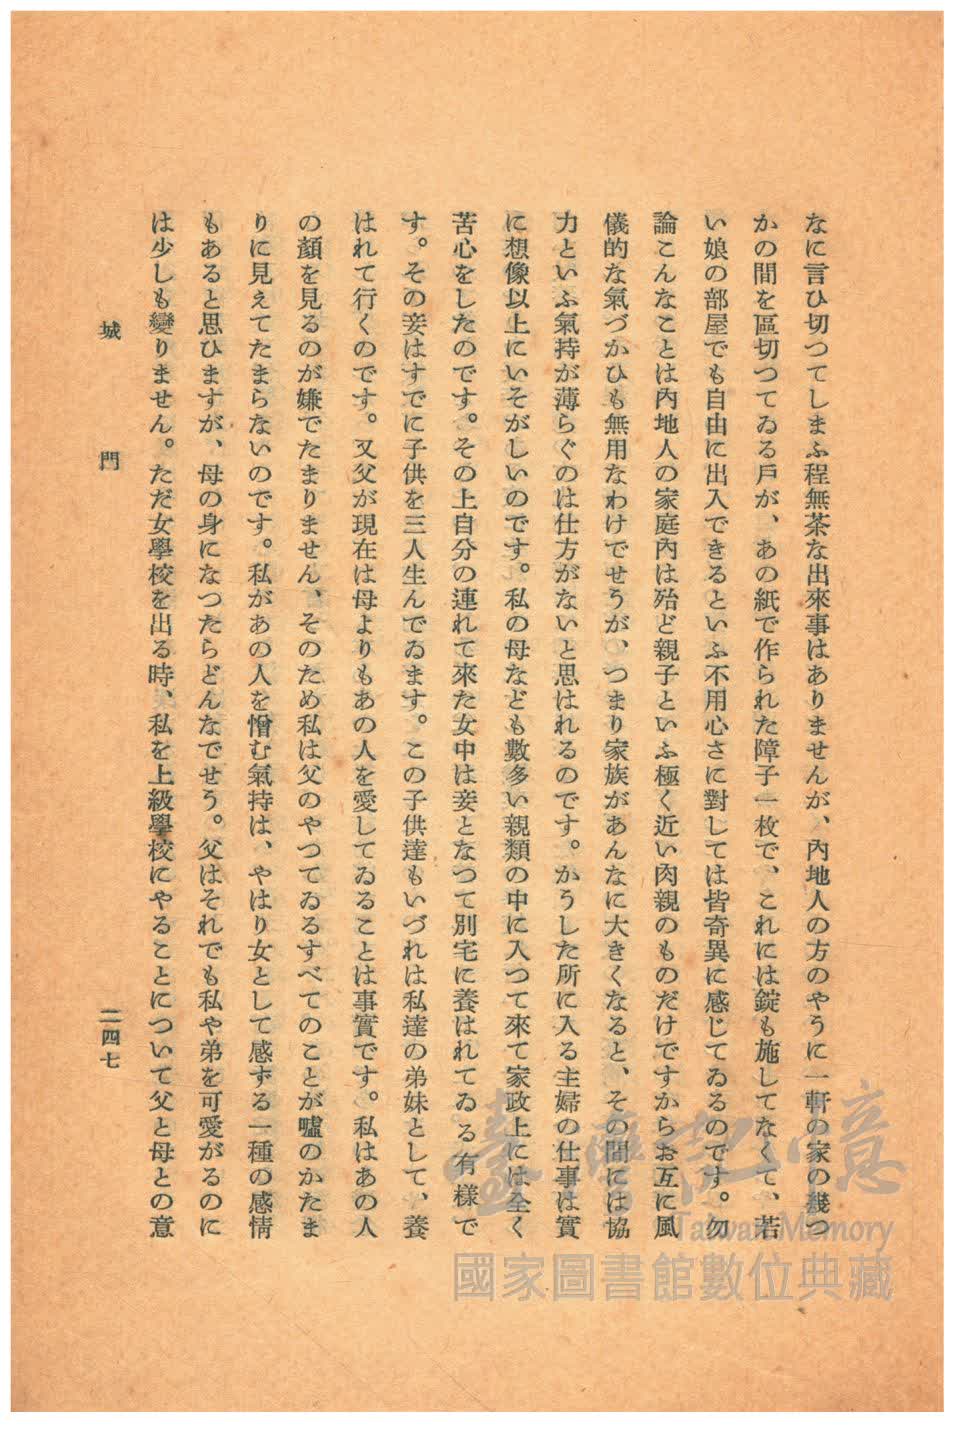 なに言ひ切つてしまふ程無茶な出來事はありませんが、內地人の方のやうに一軒の家の幾つ
かの間を區切つてゐる戶が、あの紙で作られた障子一枚で、これには錠も施してなくて、若
い娘の部屋でも自由に出入できるといふ不用心さに對しては皆奇異に感じてゐるのです。勿
論こんなことは內地人の家庭內は殆ど親子といふ極く近い肉親のものだけですからお互に風
儀的な氣づかひも無用なわけでせうが、つまり家族があんなに大きくなると、その間には協
力といふ氣持が薄らぐのは仕方がないと思はれるのです。かうした所に入る主婦の仕事は實
に想像以上にいそがしいのです。私の母なども數多い親類の中に入つて來て家政上には全く
苦心をしたのです。その上自分の連れて來た女中は妾となつて別宅に養はれてゐる有樣で
す。その妾はすでに子供を三人生んでゐます。この子供達もいづれは私達の弟妹として、養
はれて行くのです。又父が現在は母よりもあの人を愛してゐることは事實です。私はあの人
の顏を見るのが嫌でたまりません、そのため私は父のやつてゐるすべてのことが噓のかたま
りに見えてたまらないのです。私があの人を憎む氣持は、やはり女として感ずる一種の感情
もあると思ひますが、母の身になつたらどんなでせう。父はそれでも私や弟を可愛がるのに
は少しも變りません。ただ女學校を出る時、私を上級學校にやることについて父と母との意
城門
二四七
臺灣記憶
Taiwan Memory
國家圖書館數位典藏